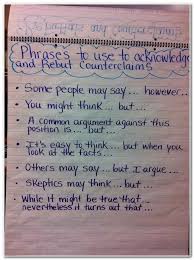 Phrases to use to acknowledge
and Rebut Counterclaims
• Some people may say ... however...
• You might think ... but ...
• A common argument against this
position is ... but ...
• It's easy to think ... but when you
look at the facts...
• Others may say ... but I argue ...
• Skeptics may think ... but ...
• While it might be true that ...
nevertheless it turns out that ...